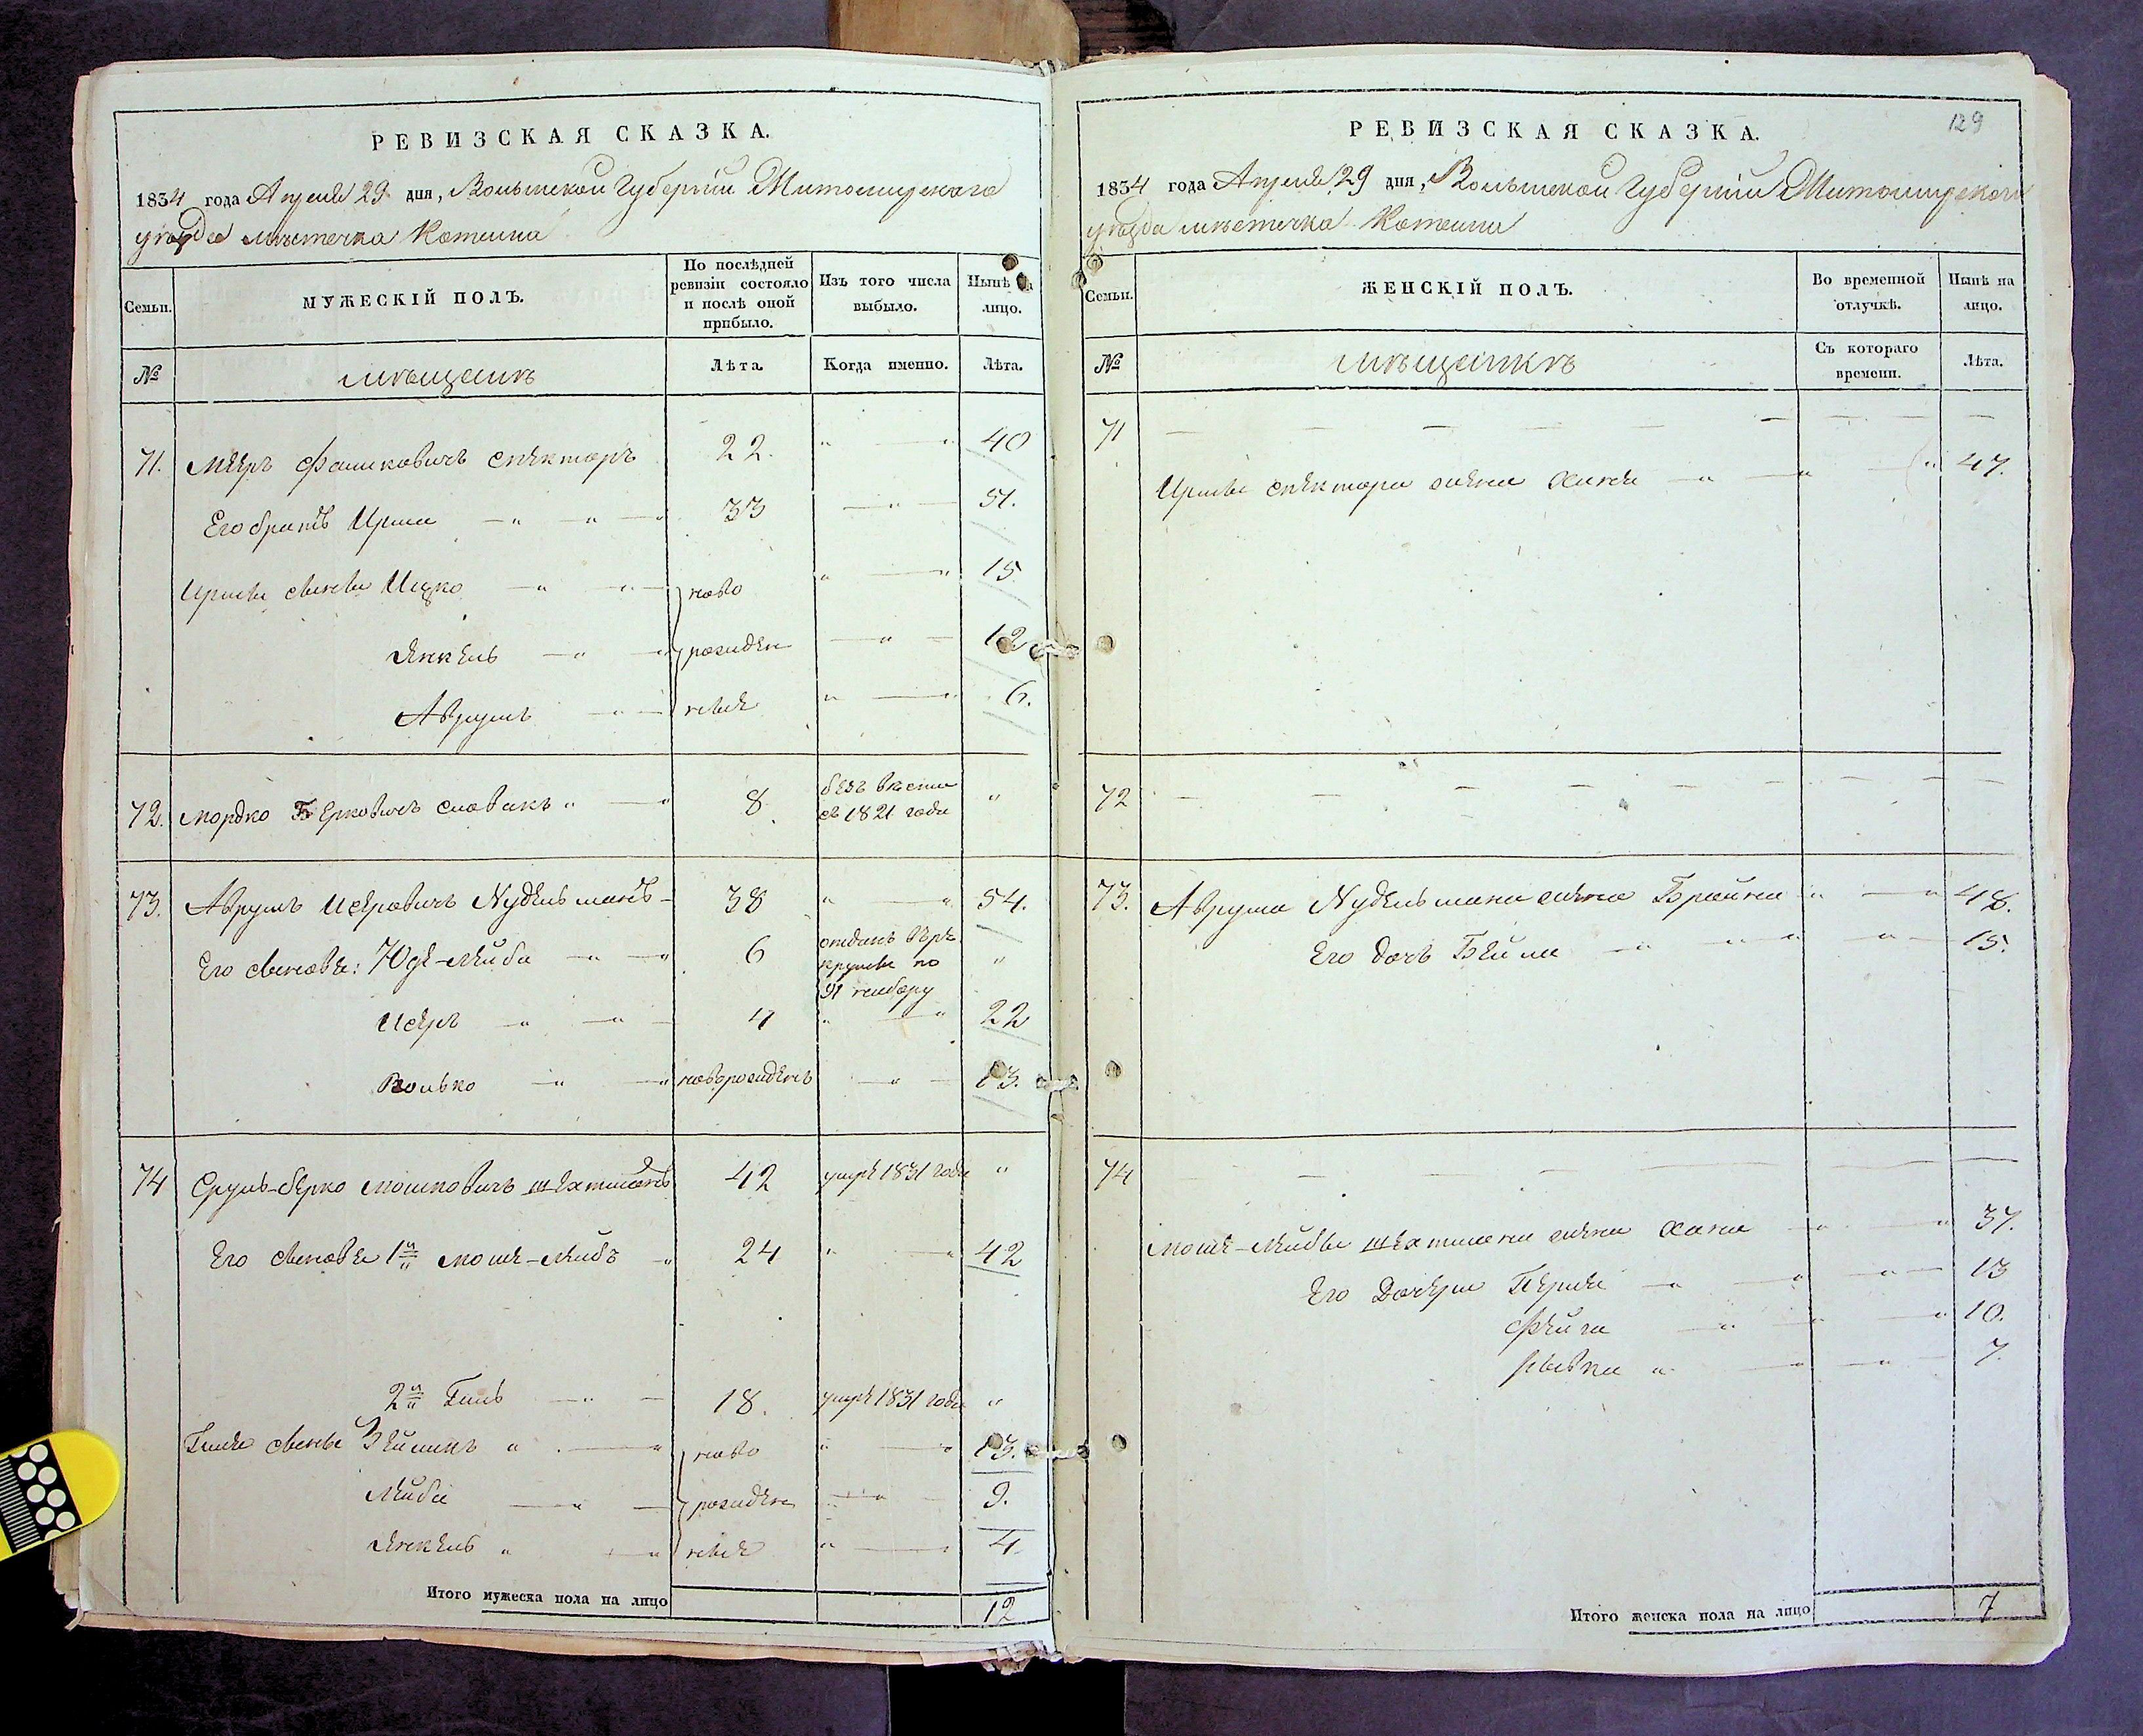 РЕВИЗСКАЯ СКАЗКА.
1834 года Апреля 29 дня, Волынской Губерніи Житомирскаго
уѣзда мѣстечка Котелна
Семьи.
МУЖЕСКІЙ ПОЛЪ.
По послѣдней ревизіи состояло и послѣ оной прибыло.
Изъ того числа выбыло.
Нынѣ на лицо.
№
мѣщанъ
Лѣта.
Когда именно.
Лѣта.
71. Меер Фаликовичъ Спекторъ 22. " — " 40
Его братъ Ирша — " — " — " 33 — " — 51.
Иршы сыны Ицко — " — " — ново " — " 15
Янкель — " — " рожден — " — 12
Аврумъ — " — ные " — " 6.
72. Мордко Берковичъ Словакъ " — " 8 безъ вѣсти "
съ 1821 года
73. Аврумъ Исеровичъ Нудельманъ — 38 " — " 54.
Его сыновья: Юде-Лейба — " — " 6 отданъ въ ре
круты по "
91 набору
Исеръ — " — " — 4 " — " 22
Волько — " — " новорожденъ — " — 13.
74 Сруль-Берко Мошковичъ Шехтманъ 42 умре 1831 года "
Его сыновья 1й Моше-Лейбъ " 24 " — " 42
2й Гиль — " — 18. умре 1831 года "
Гиля сыны Зейликъ " — " ново " " 13.
Лейба — " — рожден — " — 9.
Янкель " — " ные " — " 4.
Итого мужеска пола на лицо 12
129
РЕВИЗСКАЯ СКАЗКА.
1834 года Апреля 29 дня, Волынской Губерніи Житомирскаго
уѣзда мѣстечка Котелни
Семьи.
ЖЕНСКІЙ ПОЛЪ.
Во временной отлучкѣ.
Нынѣ на лицо.
№
мѣщанкъ
Съ котораго времени.
Лѣта.
71 — — — — — — — — — —
Иршы Спектора жена Хиня — " — " — " 47.
72 — — — — — — — — —
73. Аврума Нудельмана жена Брайна " — " 48.
Его дочь Бейла — " — " — " — " — 15.
74 — — — — — — — —
Моше-Лейбы Шехтмана жена Хана — " — " 37.
Его Дочери Перля — " — " — " — 13
Фейга — " — " — " 10.
Рывка " — " — " — 7.
Итого женска пола на лицо 7